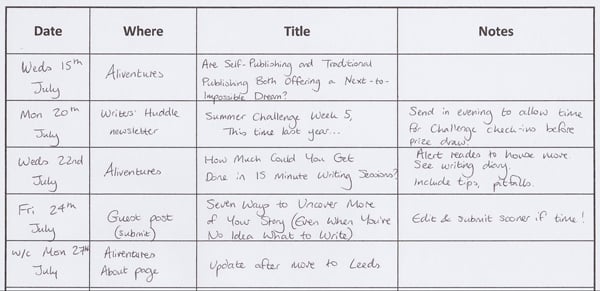 Date Where Title Notes
Weds 15th
July
Aliventures
Are Self-Publishing and Traditional
Publishing Both Offering a Next-to-
Impossible Dream?
Mon 20th
July
Writers' Huddle
newsletter
Summer Challenge Week 5,
This time last year...
Send in evening to allow time
for Challenge check-ins before
prize draw.
Weds 22nd
July
Aliventures
How Much Could You Get
Done in 15 Minute Writing Sessions?
Alert readers to house move.
See writing diary
Include tips, pitfalls.
Fri 24th
July
Guest post
(submit)
Seven Ways to Uncover More
of Your Story (Even When You're
No Idea What to Write)
Edit & submit sooner if time!
w/c Mon 27th
July
Aliventures
About page
Update after move to Leeds